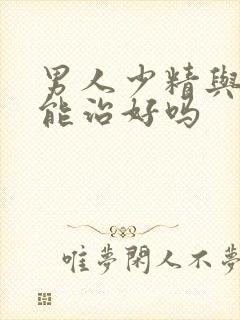 男人少精與
能治好吗
唯夢閑人不夢